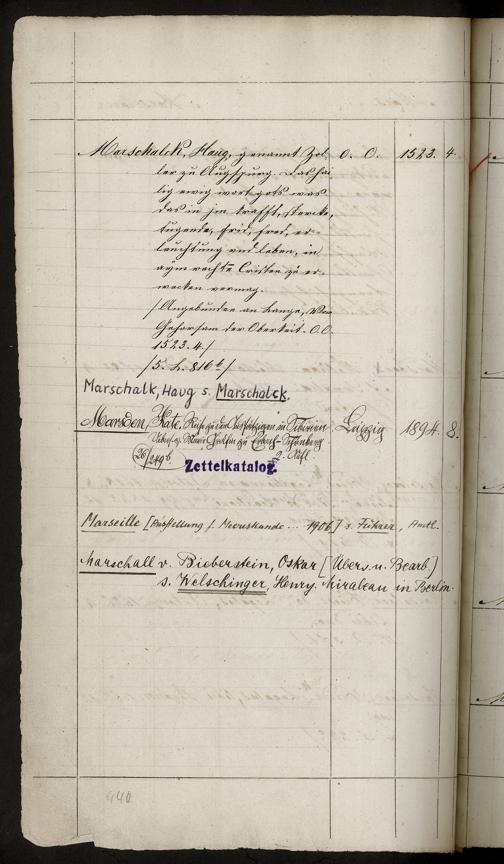 Marschalck, Haug, genannt Zol- O. O. 1523. 4.
ler zu Augspurg. Das hai-
lig ewig wort gots was
das in jm krafft, stercke,
tugende, frid, fred, er-
leuchtung vnd leben, in
aym rechte Cristen zů er-
wecken vermag.
/Angebunden an Lange, Von
Gehorsam der Oberkeit. O. O.
1523. 4./
/5. h. 816 b/
Marschalk, Haug s. Marschalck.
Marsden, Kate. Reise zu den Aussätzigen in Sibirien. Leipzig 1894. 8.
Uebers. v. Marie Gräfin zu Erbach-Schönberg
2. Aufl.
26/249 b. Zettelkatalog.
Marseille [Ausstellung f. Meereskunde ... 1906] s. Führer, Amtl.
Marschall v. Bieberstein, Oskar [Übers. u. Bearb.]
s. Welschinger, Henry. Mirabeau in Berlin.
440